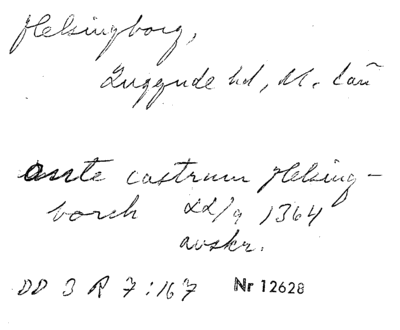 Helsingborg,
Luggude hd, M. län
ante castrum Helsing-
borch 22/9 1364
avskr.
DD 3 R 7:167 Nr 12628